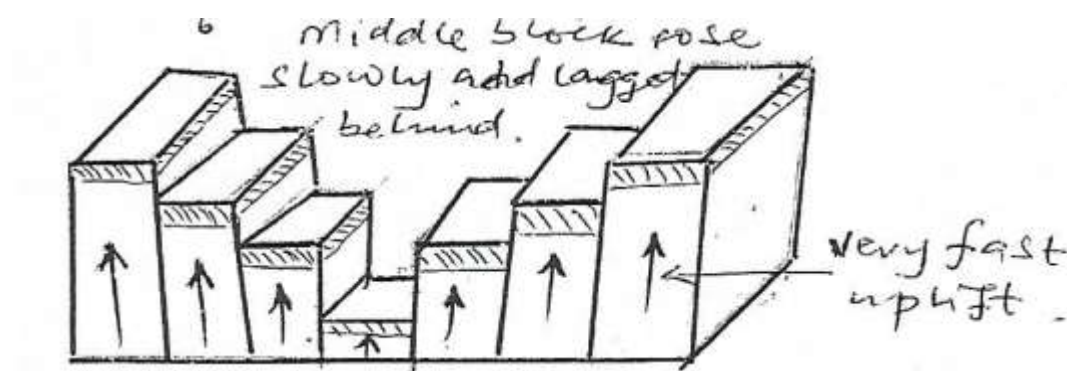 6
Middle block rose
slowly and lagged
behind.
Very fast
uplift.